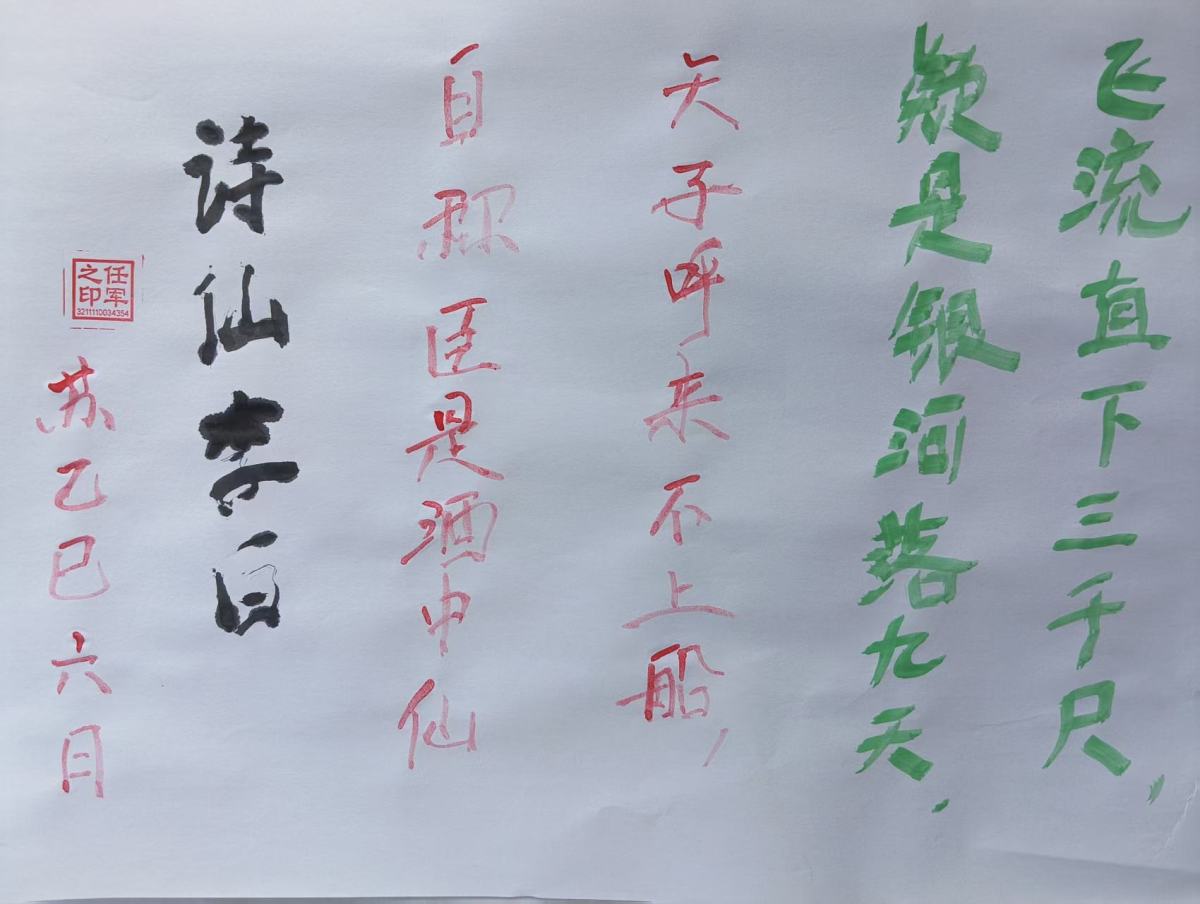 飞流直下三千尺，
疑是银河落九天.
天子呼来不上船，
自称臣是酒中仙
诗仙李白
任军之印
3211110034354
苏乙巳六月